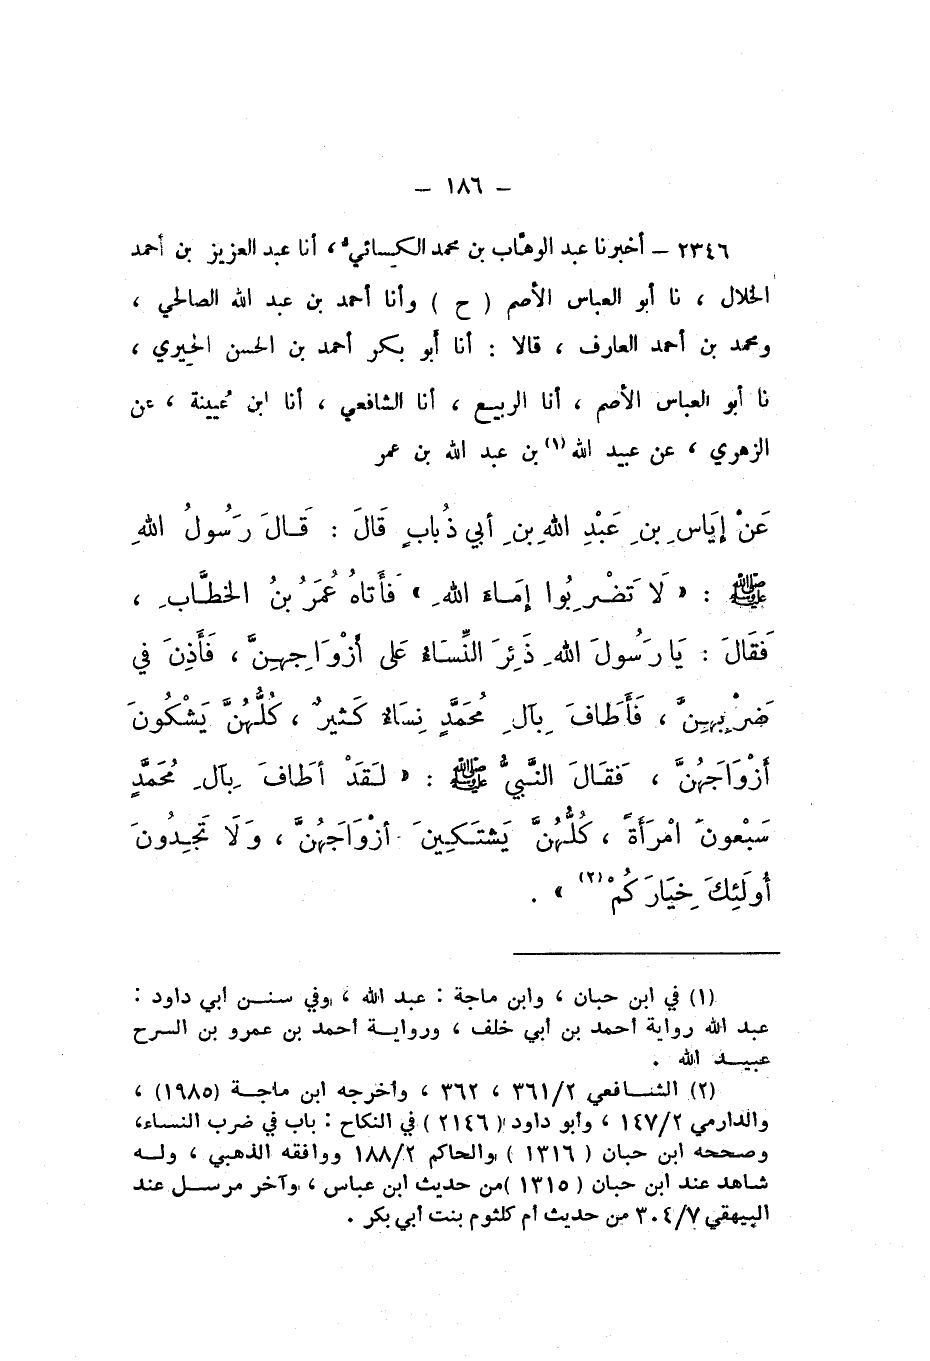 – ١٨٦ –
٢٣٤٦ – أخبرنا عبد الوهّاب بن محمد الكسائي ، أنا عبد العزيز بن أحمد
الخلال ، نا أبو العباس الأصم ( ح ) وأنا أحمد بن عبد الله الصالحي ،
ومحمد بن أحمد العارف ، قالا : أنا أبو بكر أحمد بن الحسن الحيري ،
نا أبو العباس الأصم ، أنا الربيع ، أنا الشافعي ، أنا ابن عُيينة ، عن
الزهري ، عن عبيد الله (١) بن عبد الله بن عمر
عَنْ إِيَاسِ بنِ عَبْدِ اللهِ بنِ أَبي ذُبابٍ قَالَ : قَالَ رَسُولُ اللهِ
ﷺ : « لَا تَضْرِبُوا إِمَاءَ اللهِ » فَأَتاهُ عُمَرُ بنُ الخطَّابِ ،
فَقَالَ : يَا رَسُولَ اللهِ ذَئِرَ النِّسَاءُ عَلى أَزْوَاجِهِنَّ ، فَأَذِنَ في
ضَرْبِهِنَّ ، فَأَطَافَ بِآلِ مُحَمَّدٍ نِسَاءٌ كَثِيرٌ ، كُلُّهُنَّ يَشْكُونَ
أَزْوَاجَهُنَّ ، فَقَالَ النَّبيُّ ﷺ : « لَقَدْ أطَافَ بِآلِ مُحَمَّدٍ
سَبْعونَ امْرَأَةً ، كُلُّهُنَّ يَشْتَكِينَ أَزْوَاجَهُنَّ ، وَلَا تَجِدُونَ
أُولَئِكَ خِيَارَكُمْ (٢) » .
(١) في ابن حبان ، وابن ماجة : عبد الله ، وفي سنن أبي داود :
عبد الله رواية أحمد بن أبي خلف ، ورواية أحمد بن عمرو بن السرح
عبيد الله .
(٢) الشافعي ٣٦١/٢ ، ٣٦٢ ، وأخرجه ابن ماجة (١٩٨٥) ،
والدارمي ١٤٧/٢ ، وأبو داود ( ٢١٤٦ ) في النكاح : باب في ضرب النساء،
وصححه ابن حبان ( ١٣١٦ ) والحاكم ١٨٨/٢ ووافقه الذهبي ، وله
شاهد عند ابن حبان ( ١٣١٥ )من حديث ابن عباس ، وآخر مرسل عند
البيهقي ٣٠٤/٧ من حديث أم كلثوم بنت أبي بكر .